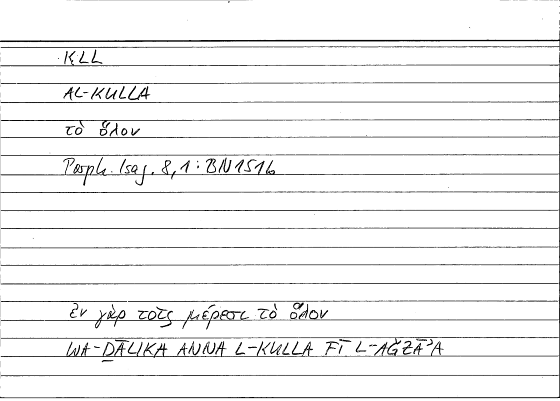 KLL
AL-KULLA
τὸ ὅλον
Porph. Isag. 8,1: BN151b
ἐν γὰρ τοῖς μέρεσι τὸ ὅλον
WA-ḎĀLIKA ANNA L-KULLA FĪ L-AǦZĀʾA